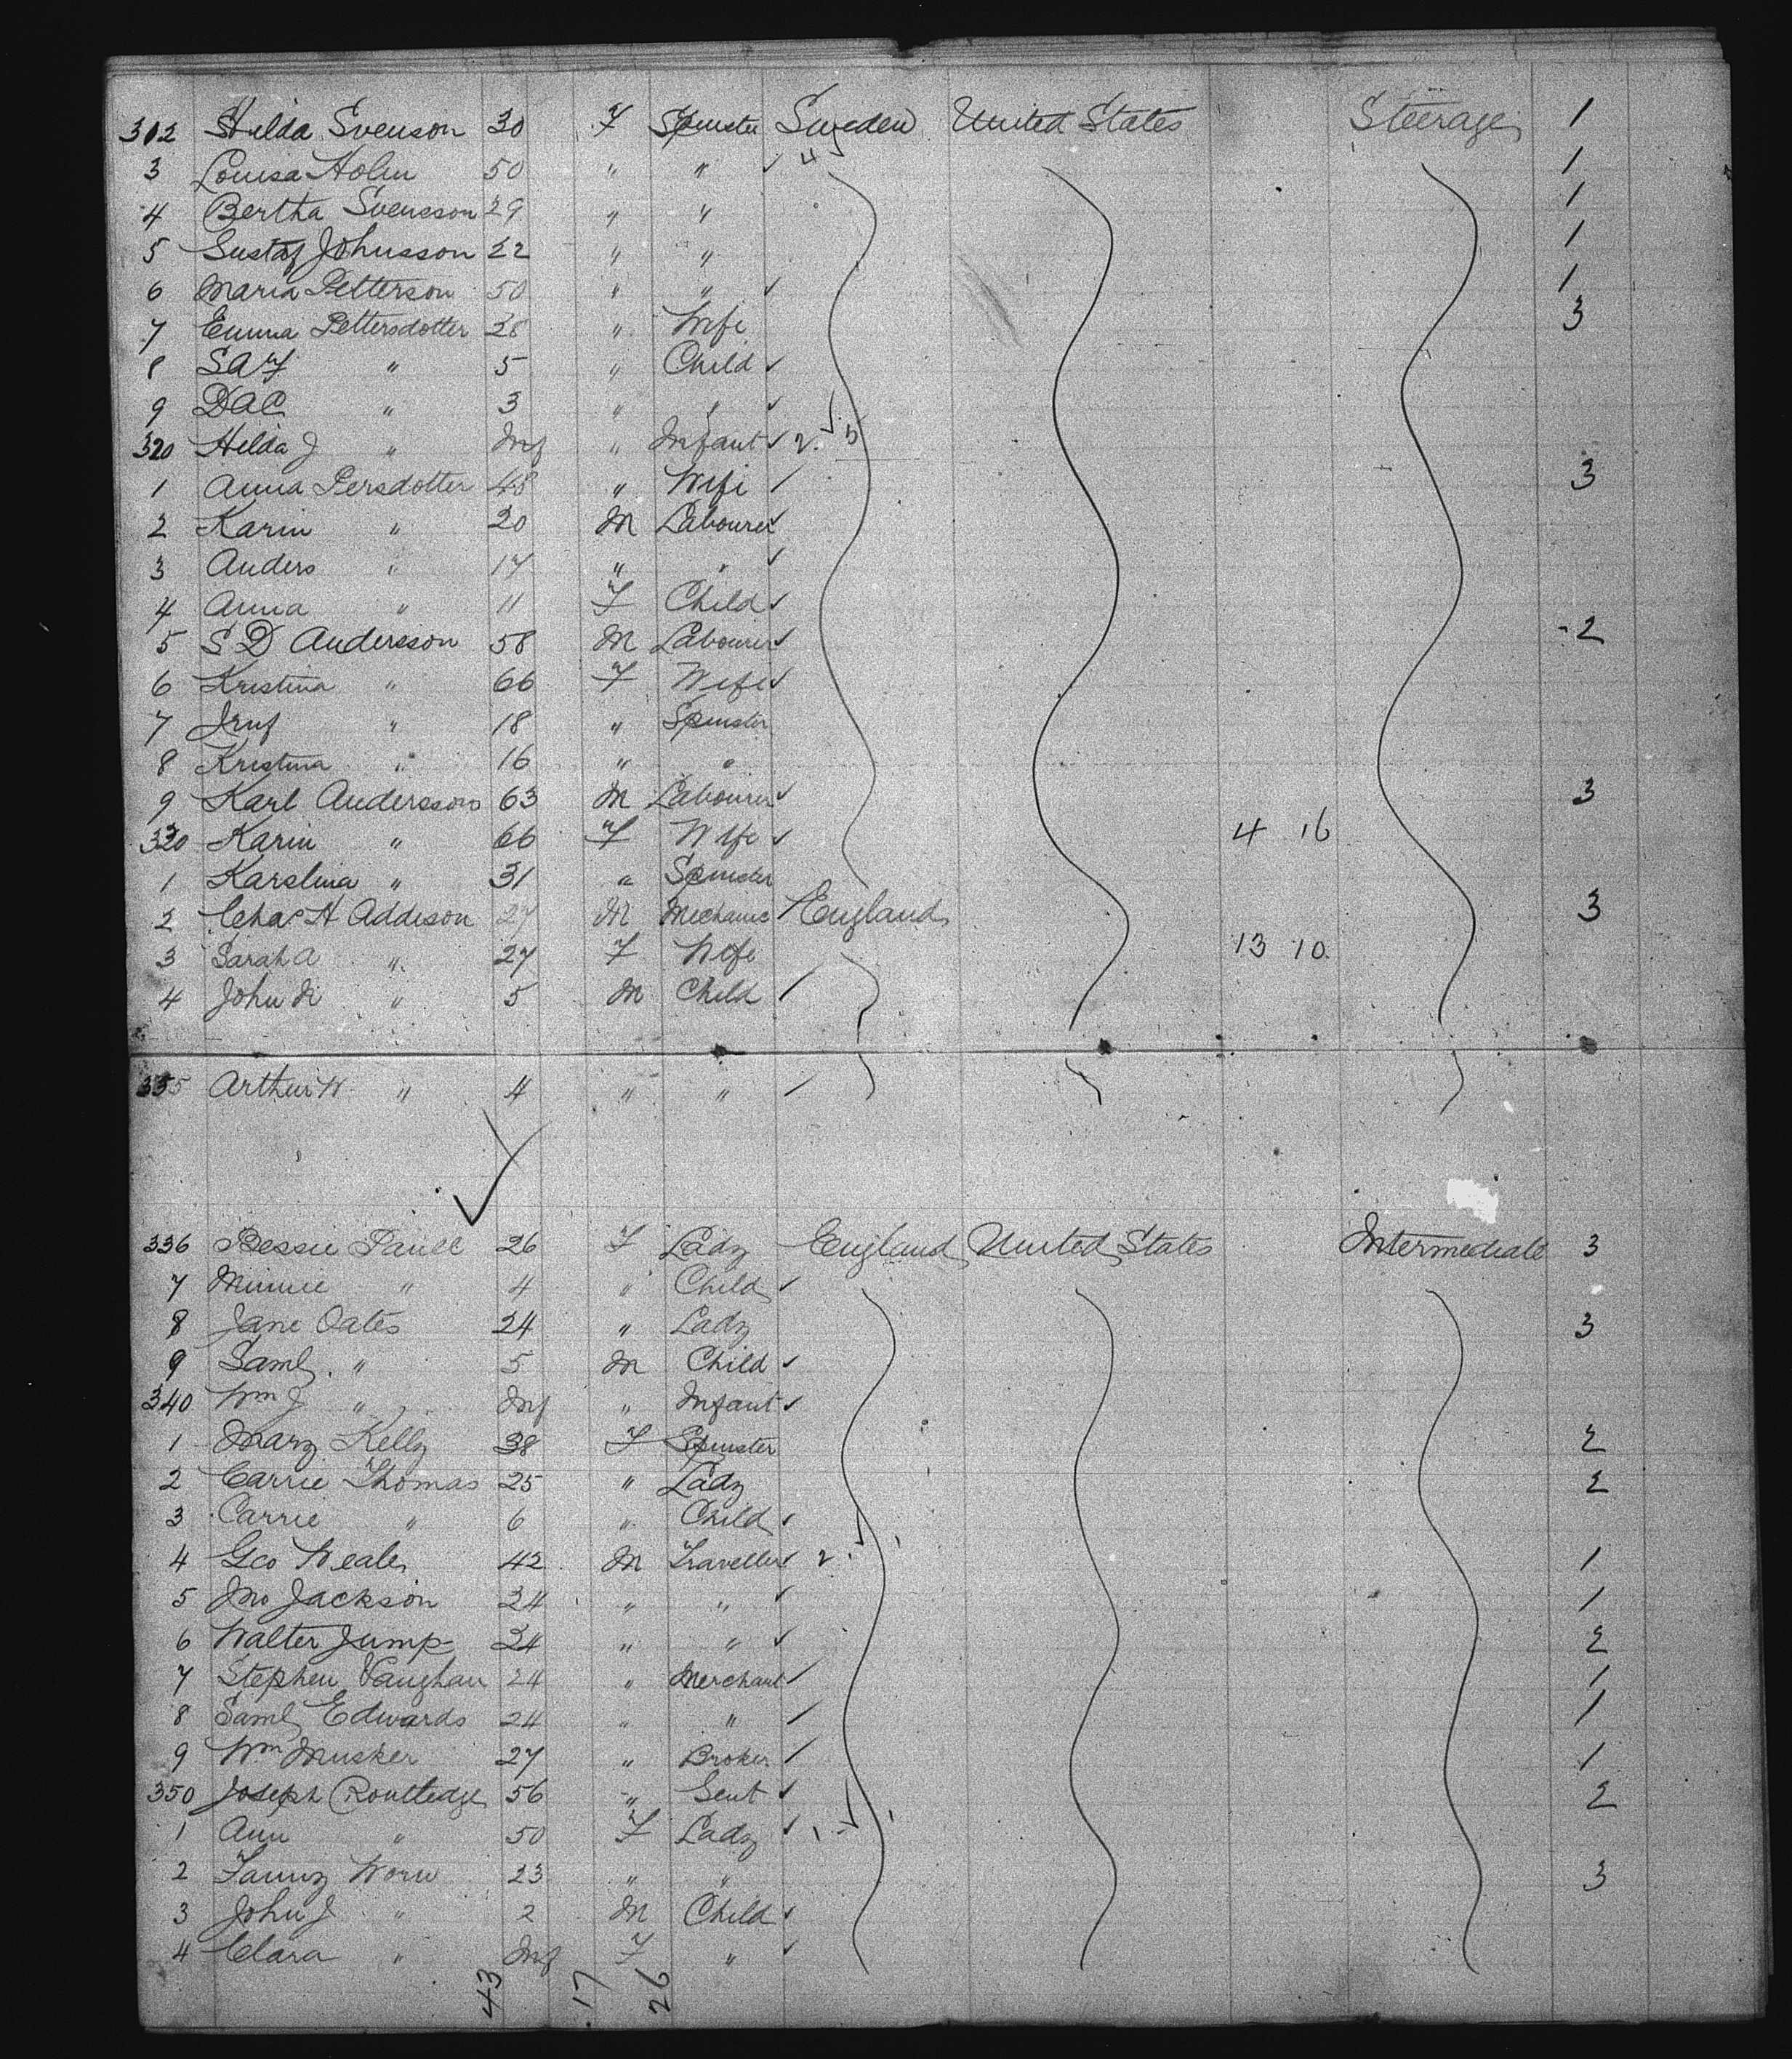 312 Hilda Svenson 30 F Spinster Sweden United States Steerage 1
3 Louisa Holm 50 " " ✓ " 1
4 Bertha Svensson 29 " " 1
5 Gustaf Johnsson 22 " " 1
6 Maria Petterson 50 " " ✓ 1
7 Emma Pettersdotter 28 " Wife 3
8 S A F " 5 " Child ✓
9 D A C " 3 " " ✓
320 Hilda J " Inf " Infant ✓ 2.
1 Anna Persdotter 48 " Wife / 3
2 Karin " 20 M Labourer ✓
3 Anders " 17 " " ✓
4 Anna " 11 F Child ✓
5 S D Andersson 58 M Labourer ✓ 2
6 Kristina " 66 F Wife ✓
7 " 18 " Spinster
8 Kristina " 16 " "
9 Karl Andersson 63 M Labourer ✓ 3
330 Karin " 66 F Wife ✓ 4 16
1 Karolina " 31 " Spinster
2 Chas H Addison 27 M Mechanic / England 3
3 Sarah A " 27 F Wife 13 10
4 John " 5 M Child /
335 Arthur W " 4 " " /
✓
336 Bessie Paull 26 F Lady England United States Intermediate 3
7 Minnie " 4 " Child ✓
8 Jane Oates 24 " Lady 3
9 Saml " 5 M Child ✓
340 Wm J " Inf " Infant ✓
1 Mary Kelly 38 F Spinster 2
2 Carrie Thomas 25 " Lady 2
3 Carrie " 6 " Child ✓
4 Geo Weale 42 M Traveller ✓ 2 1
5 Jno Jackson 24 " " ✓ 1
6 Walter Jump 34 " " ✓ 2
7 Stephen Vaughan 24 " Merchant / 1
8 Saml Edwards 24 " " / 1
9 Wm Musker 27 " Broker / 1
350 Joseph Routledge 56 " Gent ✓ 2
1 Ann " 50 F Lady ✓
2 Fanny Worn 23 " " 3
3 John J " 2 M Child ✓
4 Clara " Inf F " ✓
43 17 26